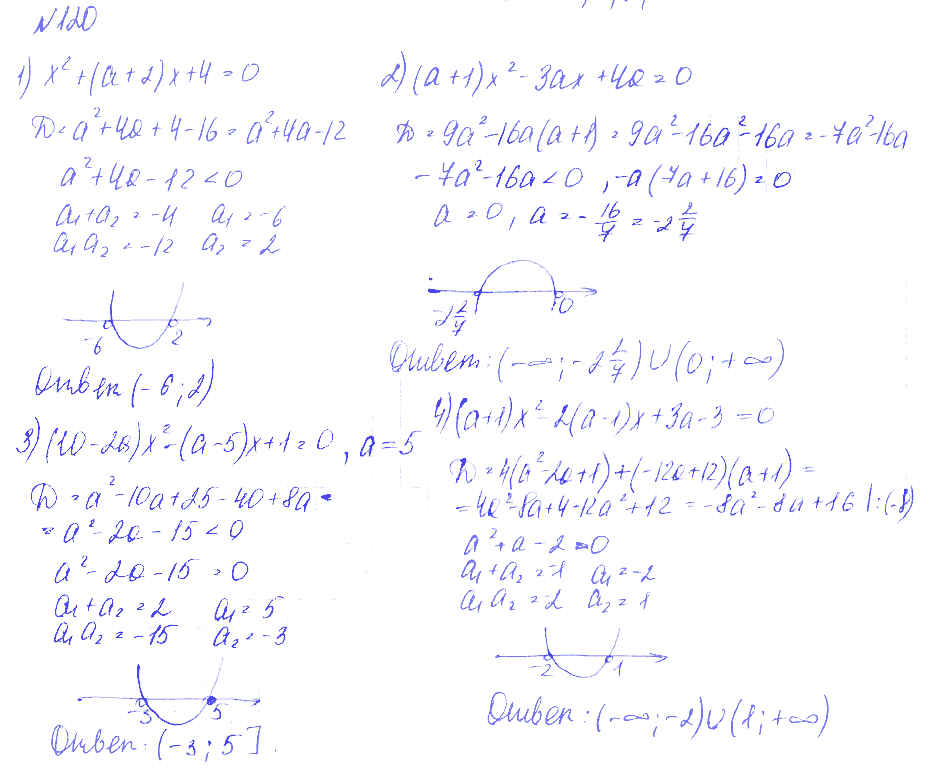 N120
1) x²+(a+2)x+4=0
D=a²+4a+4-16=a²+4a-12
a²+4a-12<0
a₁+a₂=-4 a₁=-6
a₁a₂=-12 a₂=2
-6 2
Ответ (-6;2)
2) (a+1)x²-3ax+4a=0
D=9a²-16a(a+1)=9a²-16a²-16a=-7a²-16a
-7a²-16a<0 , -a(7a+16)=0
a=0, a=-16/7=-2 2/7
-2 2/7 0
Ответ: (-∞;-2 2/7)∪(0;+∞)
3) (10-2a)x²-(a-5)x+1=0, a=5
D=a²-10a+25-40+8a=
=a²-2a-15<0
a²-2a-15=0
a₁+a₂=2 a₁=5
a₁a₂=-15 a₂=-3
-3 5
Ответ: (-3;5].
4) (a+1)x²-2(a-1)x+3a-3=0
D=4(a²-2a+1)+(-12a+12)(a+1)=
=4a²-8a+4-12a²+12=-8a²-8a+16 |:(-8)
a²+a-2=0
a₁+a₂=-1 a₁=-2
a₁a₂=-2 a₂=1
-2 1
Ответ: (-∞;-2)∪(1;+∞)